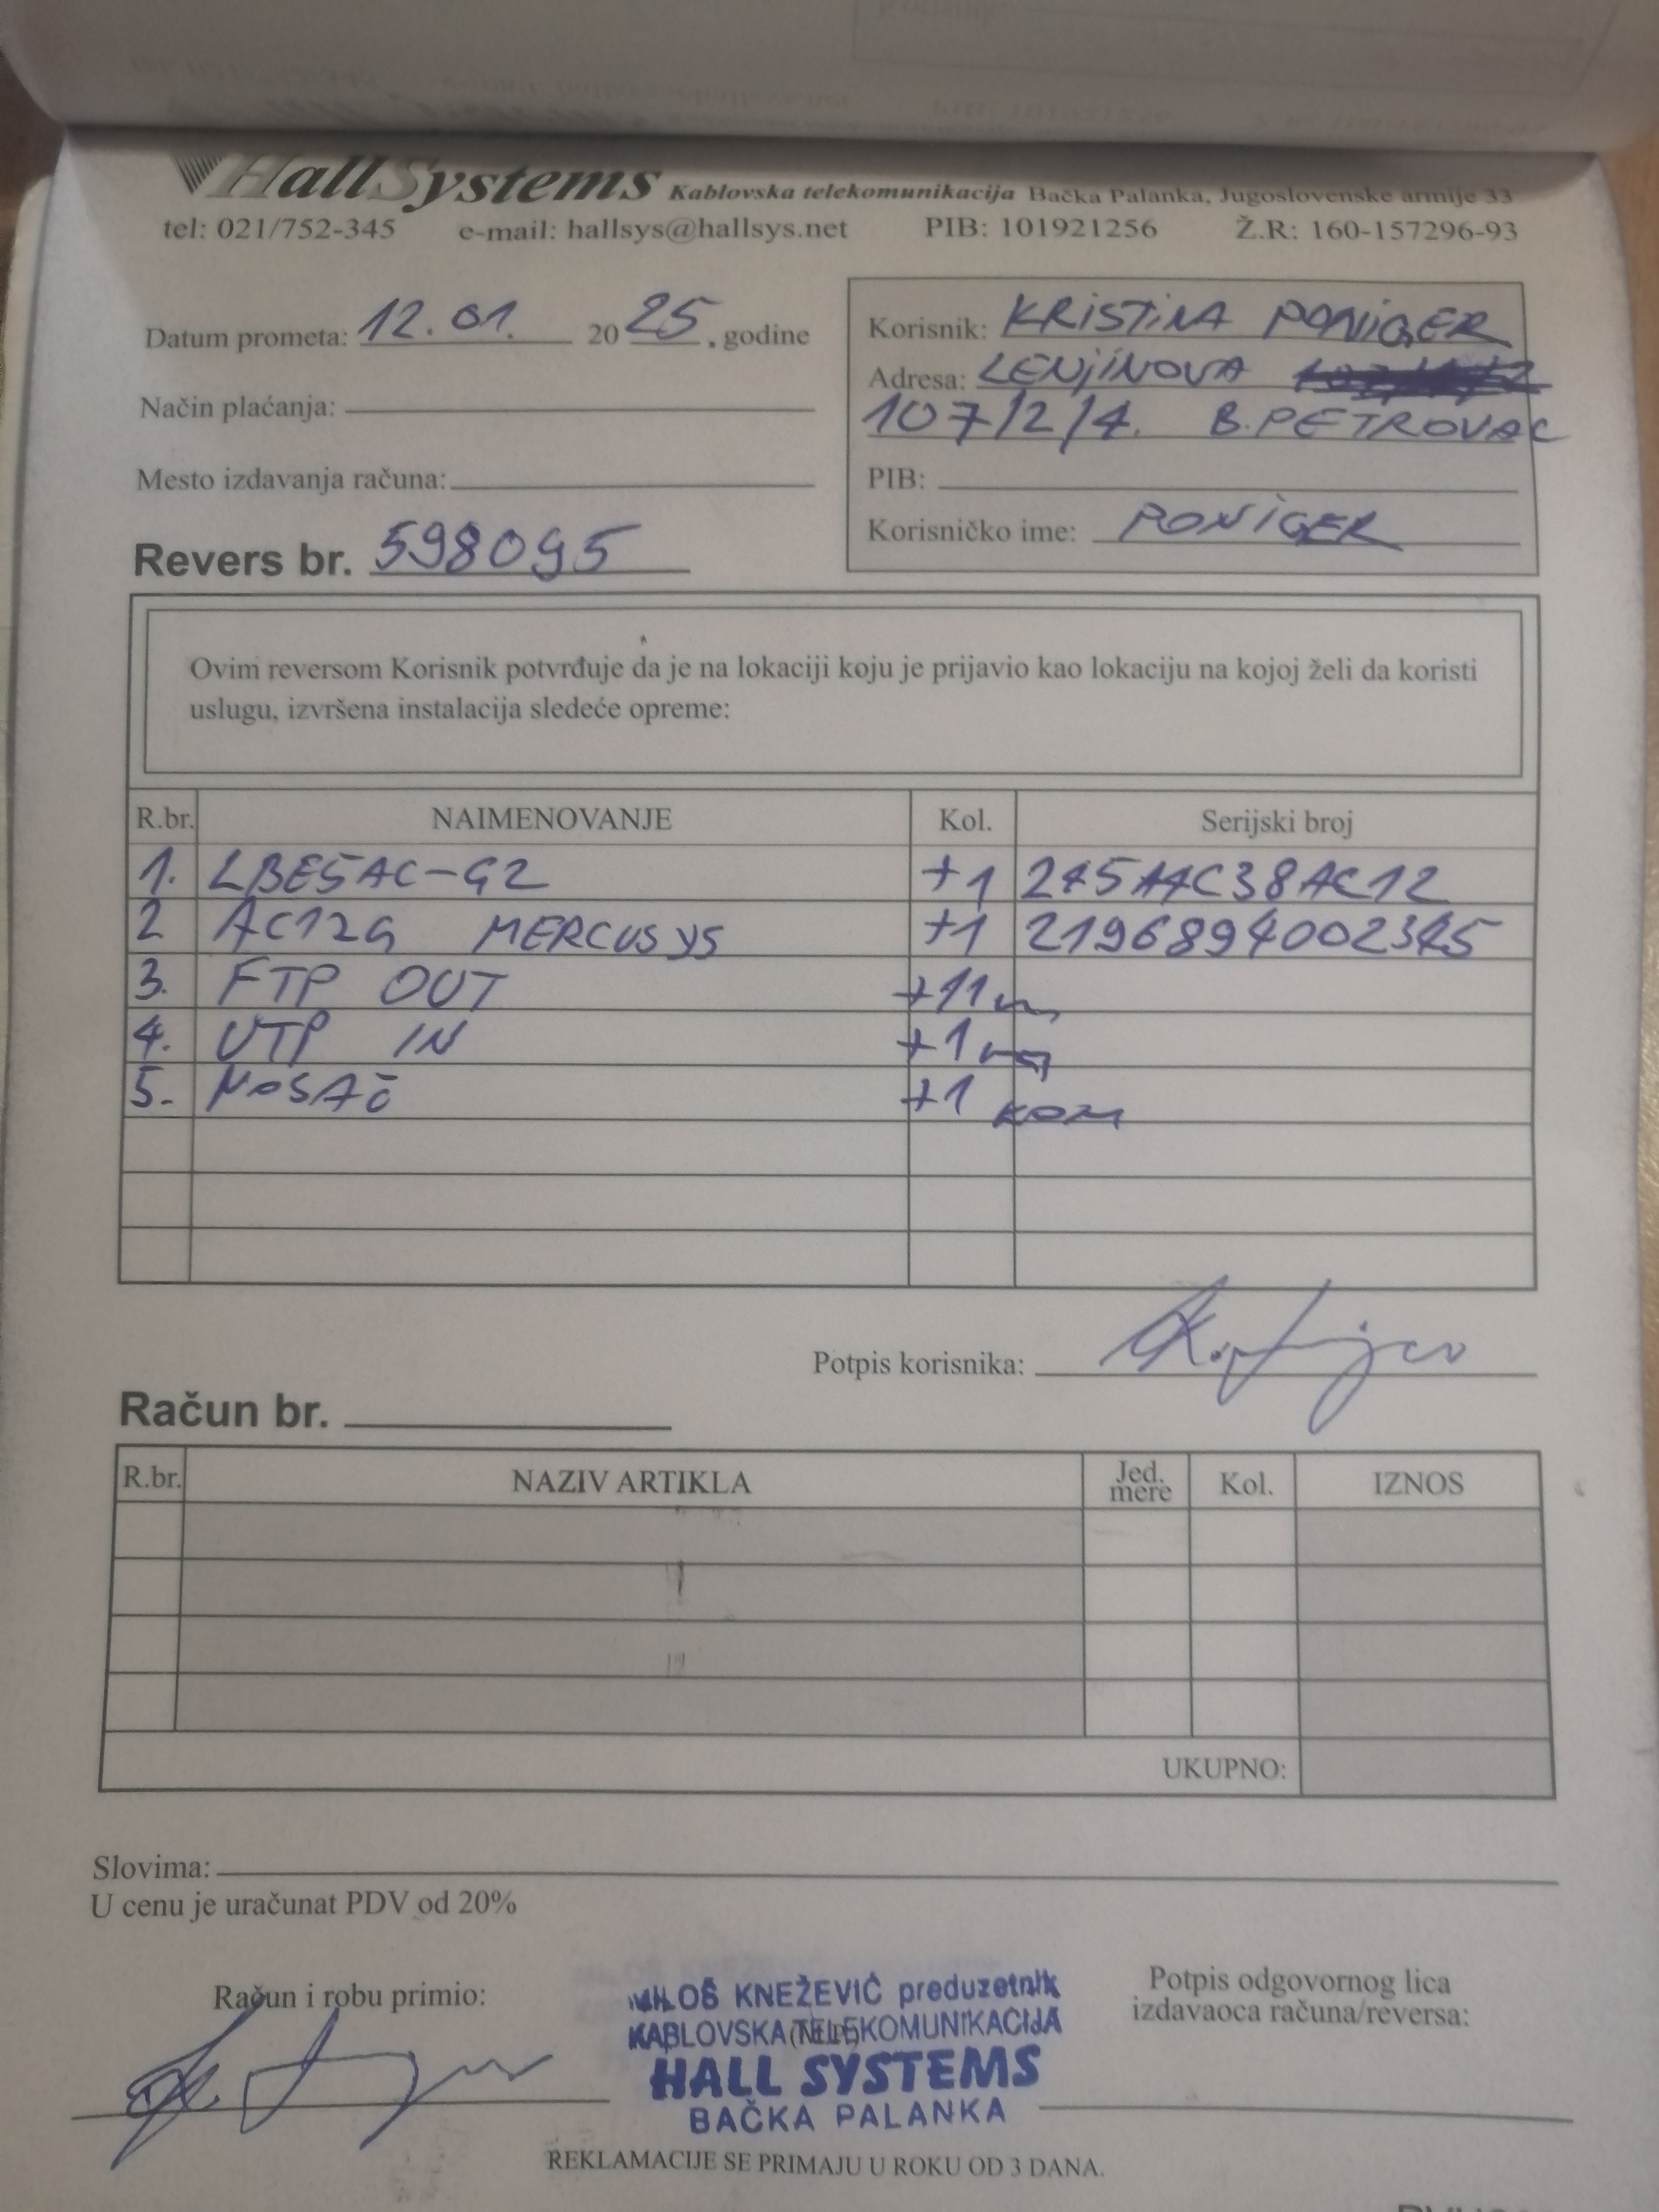 HallSystems Kablovska telekomunikacija Bačka Palanka, Jugoslovenske armije 33
tel: 021/752-345 e-mail: hallsys@hallsys.net PIB: 101921256 Ž.R: 160-157296-93
Datum prometa: 12.01. 2025. godine
Način plaćanja:
Mesto izdavanja računa:
Revers br. 598095
Korisnik: KRISTINA PONIGER
Adresa: LENJINOVA
107/2/4. B.PETROVAC
PIB:
Korisničko ime: PONIGER
Ovim reversom Korisnik potvrđuje da je na lokaciji koju je prijavio kao lokaciju na kojoj želi da koristi
uslugu, izvršena instalacija sledeće opreme:
R.br. NAIMENOVANJE Kol. Serijski broj
1. LBE5AC-G2 +1
2 AC12G MERCUSYS +1
3. FTP OUT +11m
4. UTP IN +1m
5. NOSAČ +1 KOM
Potpis korisnika:
Račun br.
R.br. NAZIV ARTIKLA Jed. mere Kol. IZNOS
UKUPNO:
Slovima:
U cenu je uračunat PDV od 20%
Račun i robu primio:
MILOŠ KNEŽEVIĆ preduzetnik
KABLOVSKA TELEKOMUNIKACIJA
(M.P.)
HALL SYSTEMS
BAČKA PALANKA
Potpis odgovornog lica
izdavaoca računa/reversa:
REKLAMACIJE SE PRIMAJU U ROKU OD 3 DANA.